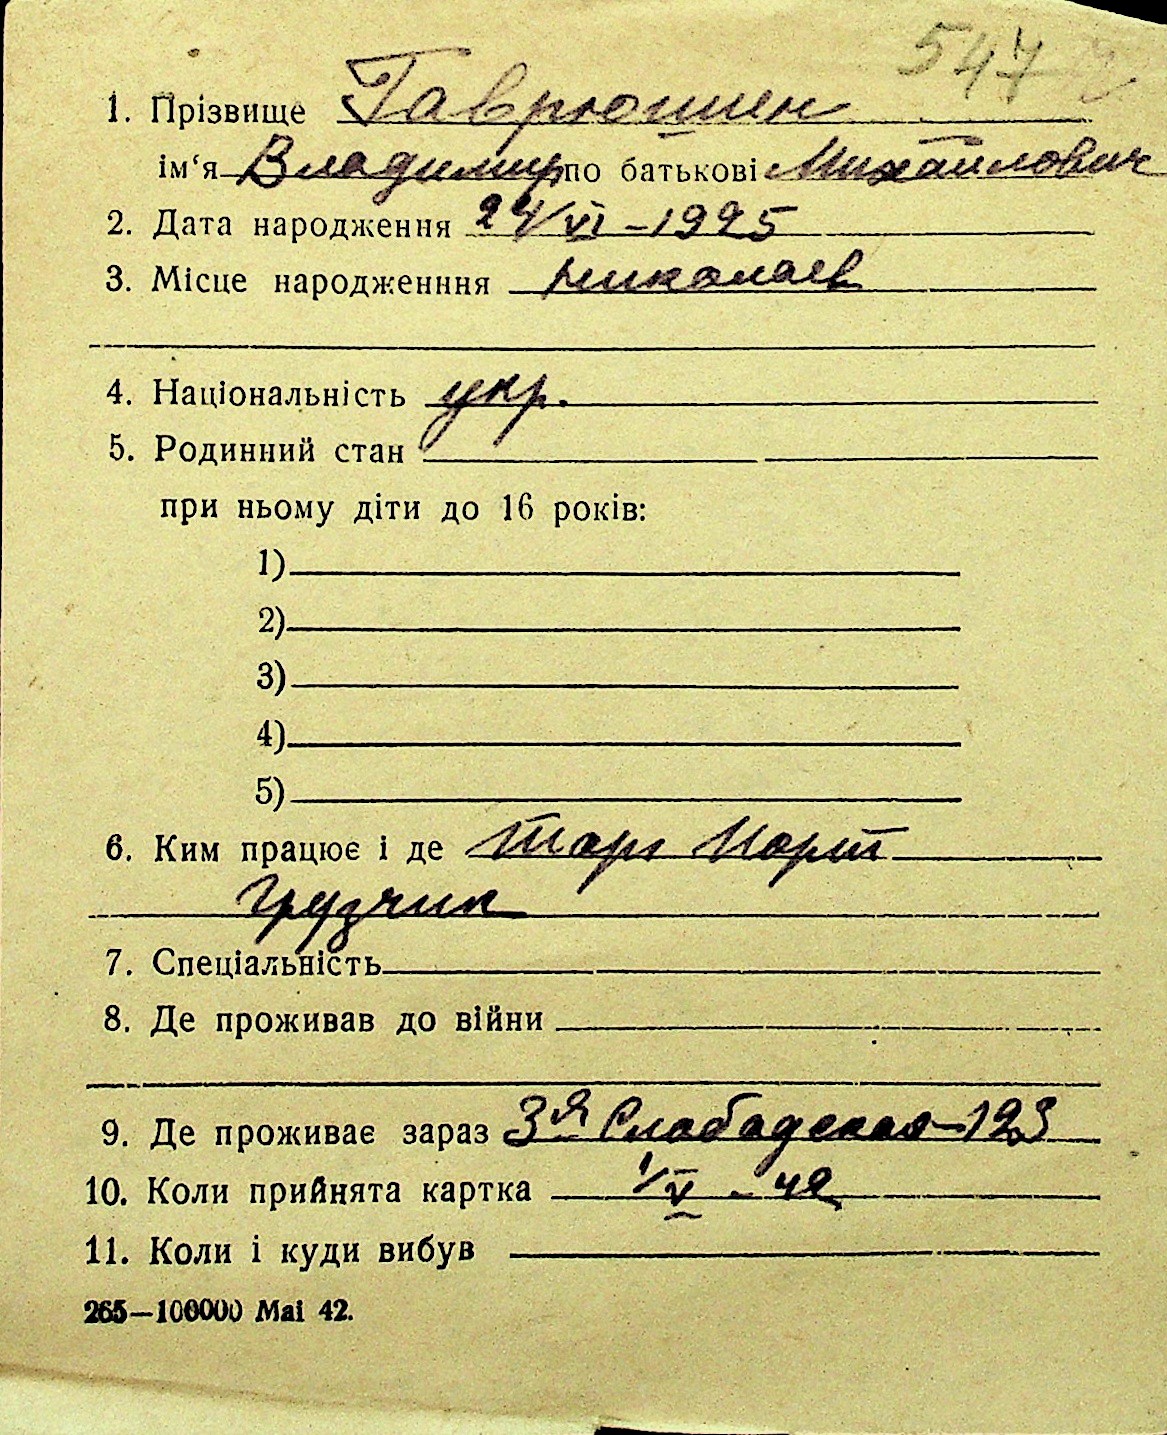 547
1. Прізвище Гаврюшен
ім‘я Владимир по батькові Михайлович
2. Дата народження 24/VI – 1925
3. Місце народженння Николаев
4. Національність укр.
5. Родинний стан
при ньому діти до 16 років:
1)
2)
3)
4)
5)
6. Ким працює і де Торг Порт
Грузчик
7. Спеціальність
8. Де проживав до війни
9. Де проживає зараз 3я Слабадская – 123
10. Коли прийнята картка 1/V – 42
11. Коли і куди вибув
265—100000 Mai 42.